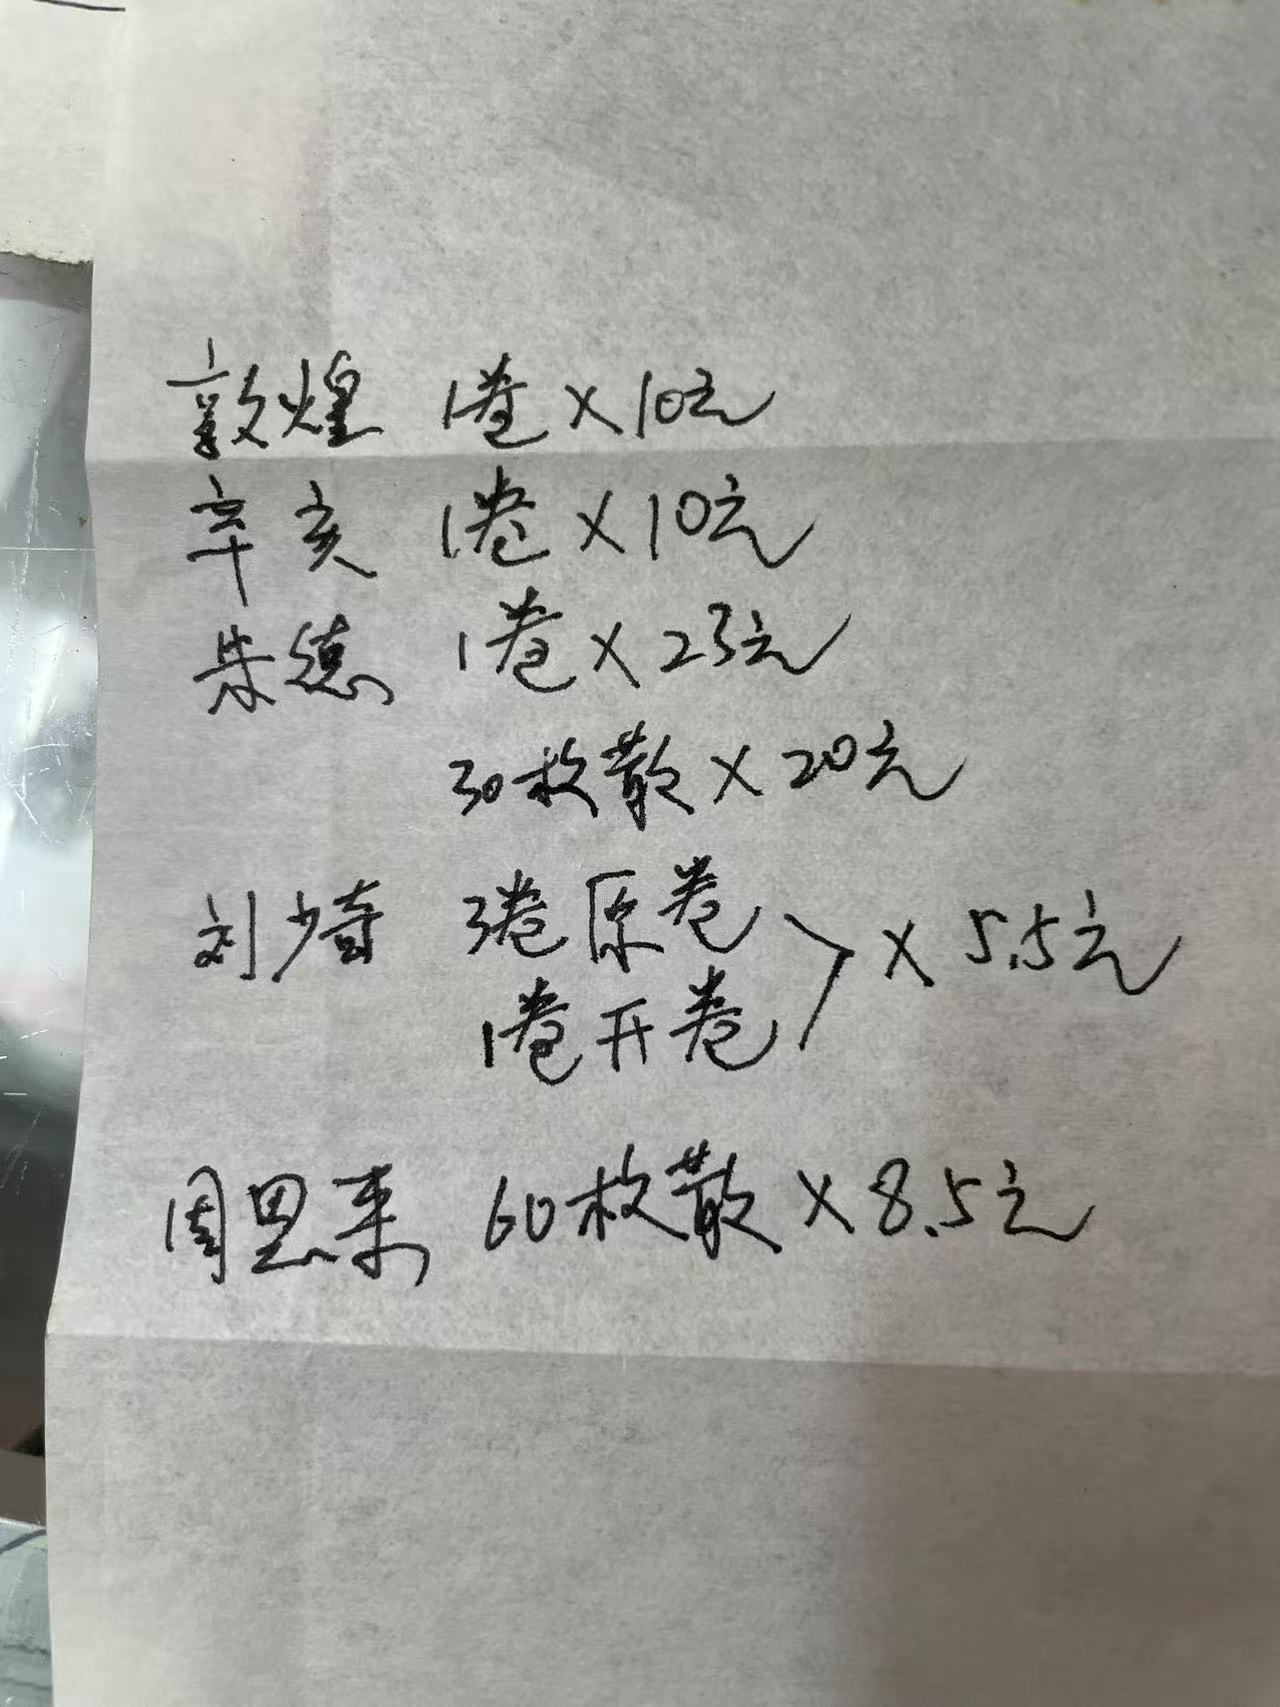 敦煌 1卷×10元
辛亥 1卷×10元
朱德 1卷×23元
30枚散×20元
刘少奇 3卷原卷
1卷开卷 ×5.5元
周恩来 60枚散×8.5元